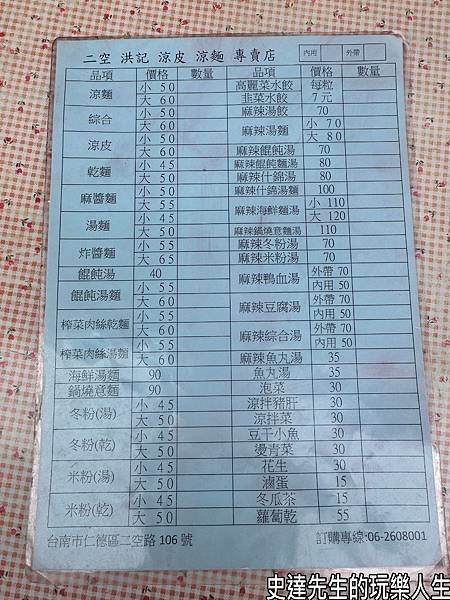 二空 洪記 涼皮 涼麵 專賣店 內用 外帶
品項 價格 數量 品項 價格 數量
涼麵 小 50 高麗菜水餃 每粒
大 60 韭菜水餃 7元
綜合 小 50 麻辣湯餃 70
大 60 麻辣湯麵 小 70
涼皮 小 50 大 80
大 60 麻辣餛飩湯 70
乾麵 小 45 麻辣餛飩麵湯 80
大 50 麻辣什錦湯 80
麻醬麵 小 50 麻辣什錦湯麵 100
大 55 麻辣海鮮麵湯 小 110
湯麵 小 45 大 120
大 50 麻辣鍋燒意麵湯 110
炸醬麵 小 55 麻辣冬粉湯 70
大 65 麻辣米粉湯 70
餛飩湯 40 麻辣鴨血湯 外帶 70
餛飩湯麵 小 55 內用 50
大 60 麻辣豆腐湯 外帶 70
榨菜肉絲乾麵 小 55 內用 50
大 60 麻辣綜合湯 外帶 70
榨菜肉絲湯麵 小 55 內用 50
大 60 麻辣魚丸湯 35
海鮮湯麵 90 魚丸湯 35
鍋燒意麵 90 泡菜 30
冬粉(湯) 小 45 涼拌豬肝 30
大 50 涼拌菜 30
冬粉(乾) 小 45 豆干小魚 30
大 50 燙青菜 30
米粉(湯) 小 45 花生 30
大 50 滷蛋 15
米粉(乾) 小 45 冬瓜茶 15
大 50 蘿蔔乾 55
台南市仁德區二空路 106 號 訂購專線:06-2608001
史達先生的玩樂人生